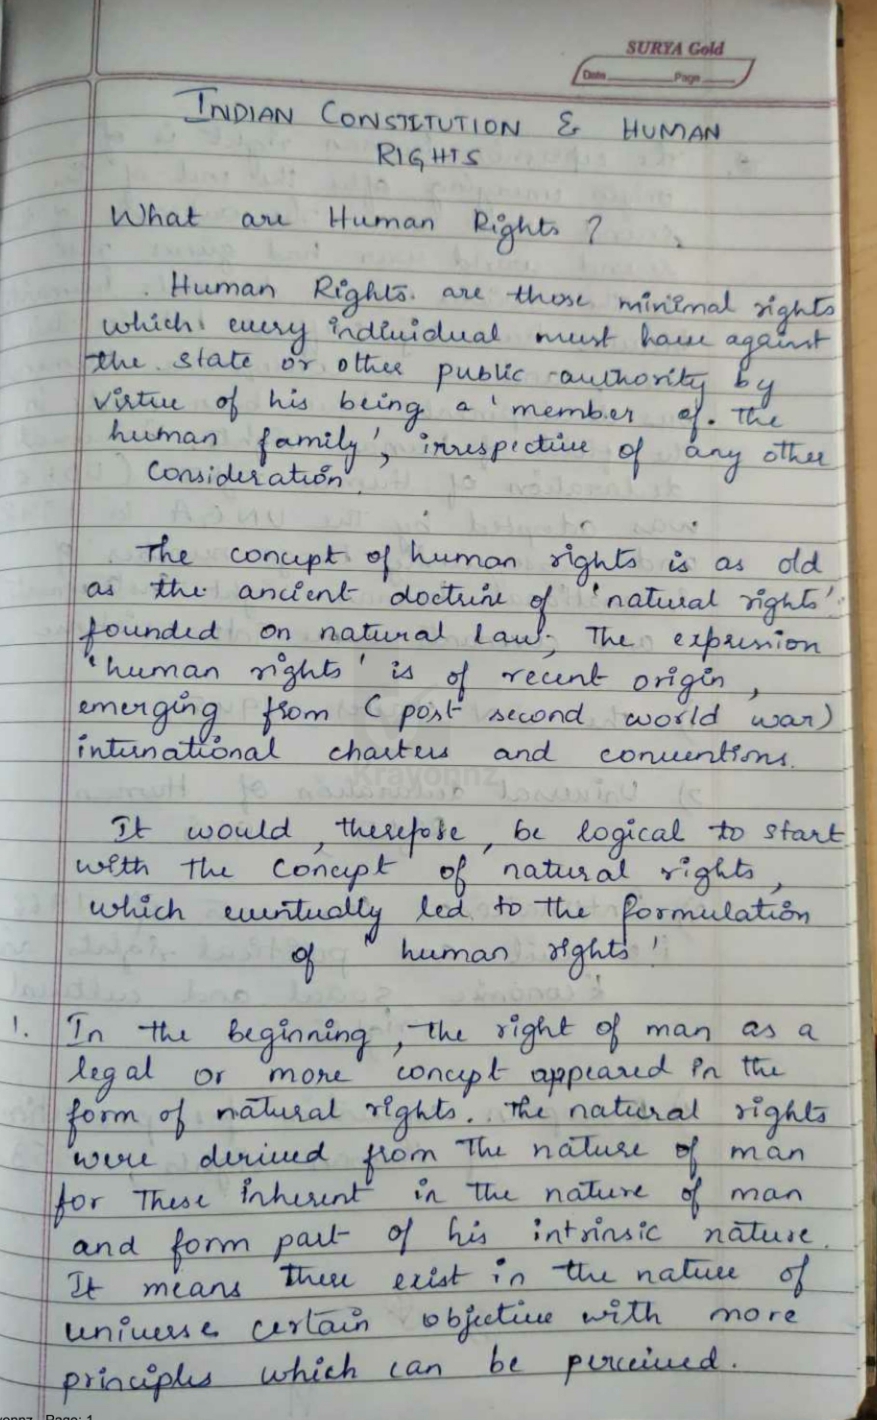 SURYA Gold
Date Page
INDIAN CONSTITUTION & HUMAN
RIGHTS
What are Human Rights ?
Human Rights are those minimal rights
which every individual must have against
the state or other public authority by
virtue of his being a 'member of the
human family', irrespective of any other
Consideration.
The concept of human rights is as old
as the ancient doctrine of 'natural rights'
founded on natural law; The expression
'human rights' is of recent origin,
emerging from (post second world war)
international charters and conventions.
It would, therefore, be logical to start
with the concept of natural rights,
which eventually led to the formulation
of "human rights'
1. In the beginning, the right of man as a
legal or more concept appeared in the
form of natural rights. The natural rights
were derived from The nature of man
for These inherent in the nature of man
and form part of his intrinsic nature.
It means there exist in the nature of
universe certain objective with more
principles which can be perceived.
Krayonnz
Page: 1